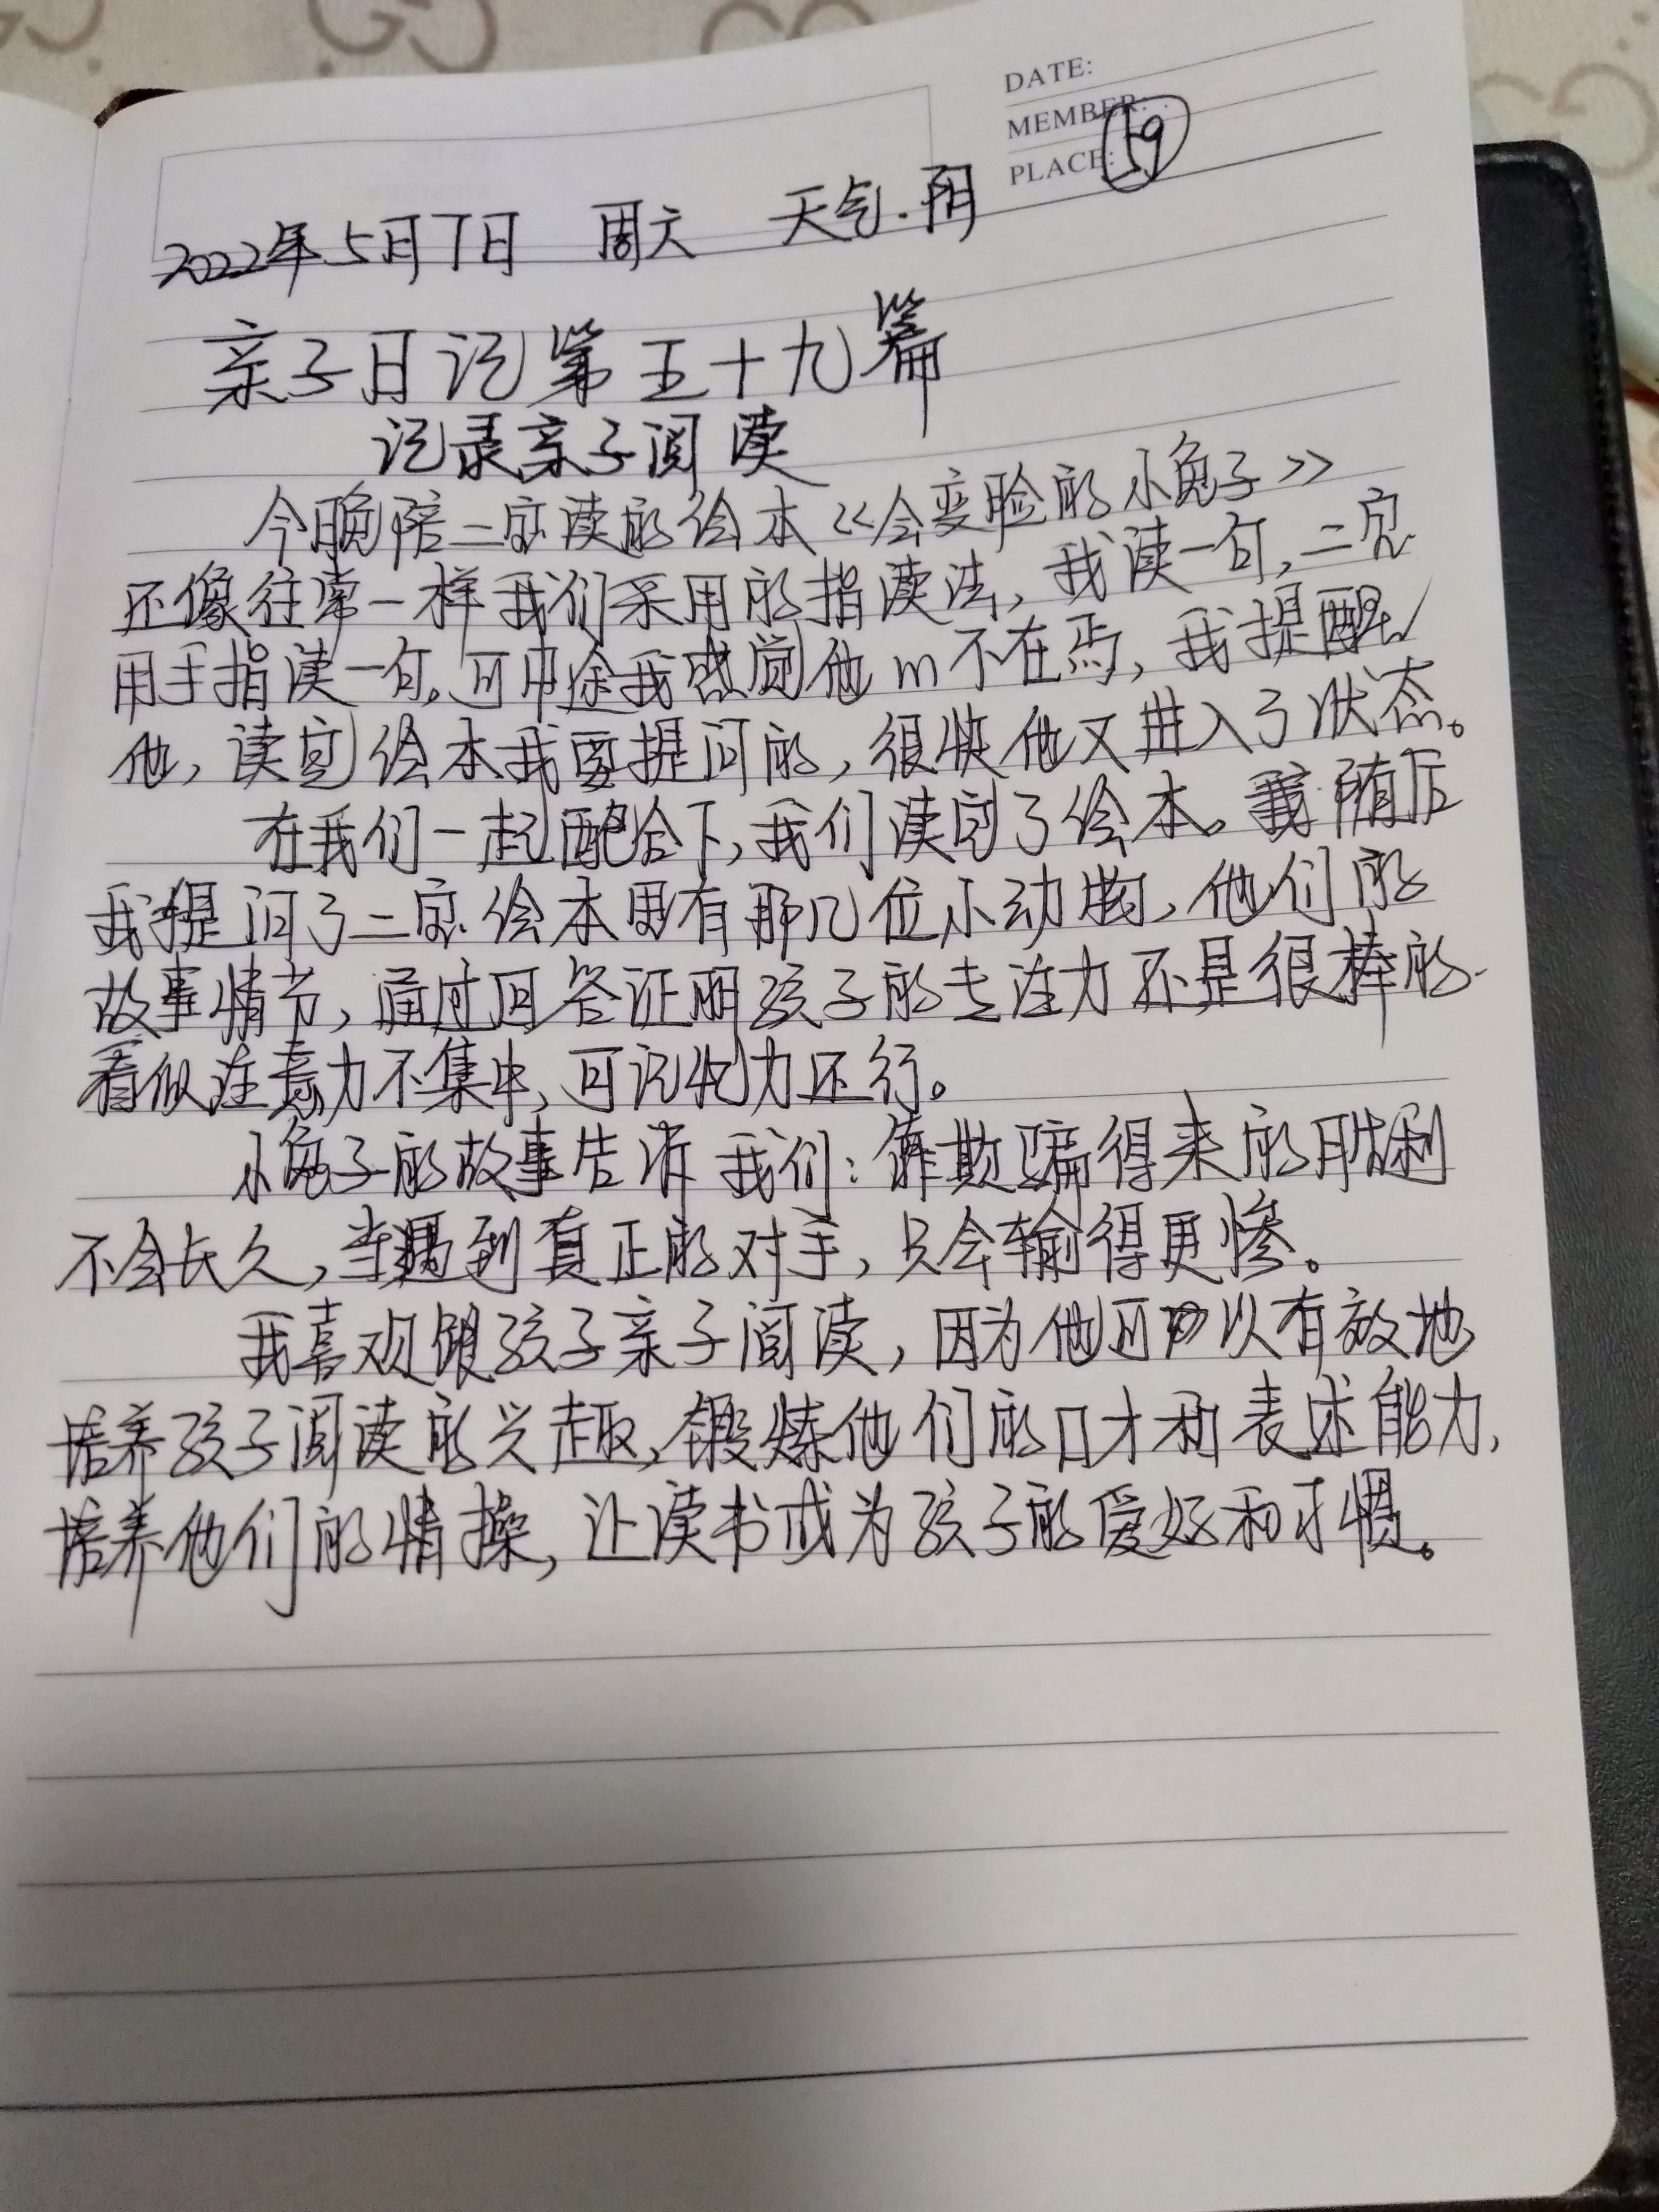 DATE:
MEMBER:
PLACE:
59
2022年5月7日 周六 天气.阴
亲子日记第五十九篇
记录亲子阅读
今晚陪二宝读的绘本《会变脸的小兔子》
还像往常一样我们采用的指读法,我读一句,二宝
用手指读一句。可中途我感觉他心不在焉,我提醒
他,读完绘本我要提问的,很快他又进入了状态。
在我们一起配合下,我们读完了绘本。随后
我提问了二宝绘本里有那几位小动物,他们的
故事情节,通过回答证明孩子的专注力还是很棒的
看似注意力不集中,可记忆力还行。
小兔子的故事告诉我们:靠欺骗得来的胜利
不会长久,当遇到真正的对手,只会输得更惨。
我喜欢跟孩子亲子阅读,因为他可以有效地
培养孩子阅读的兴趣,锻炼他们的口才和表述能力,
培养他们的情操,让读书成为孩子的爱好和习惯。